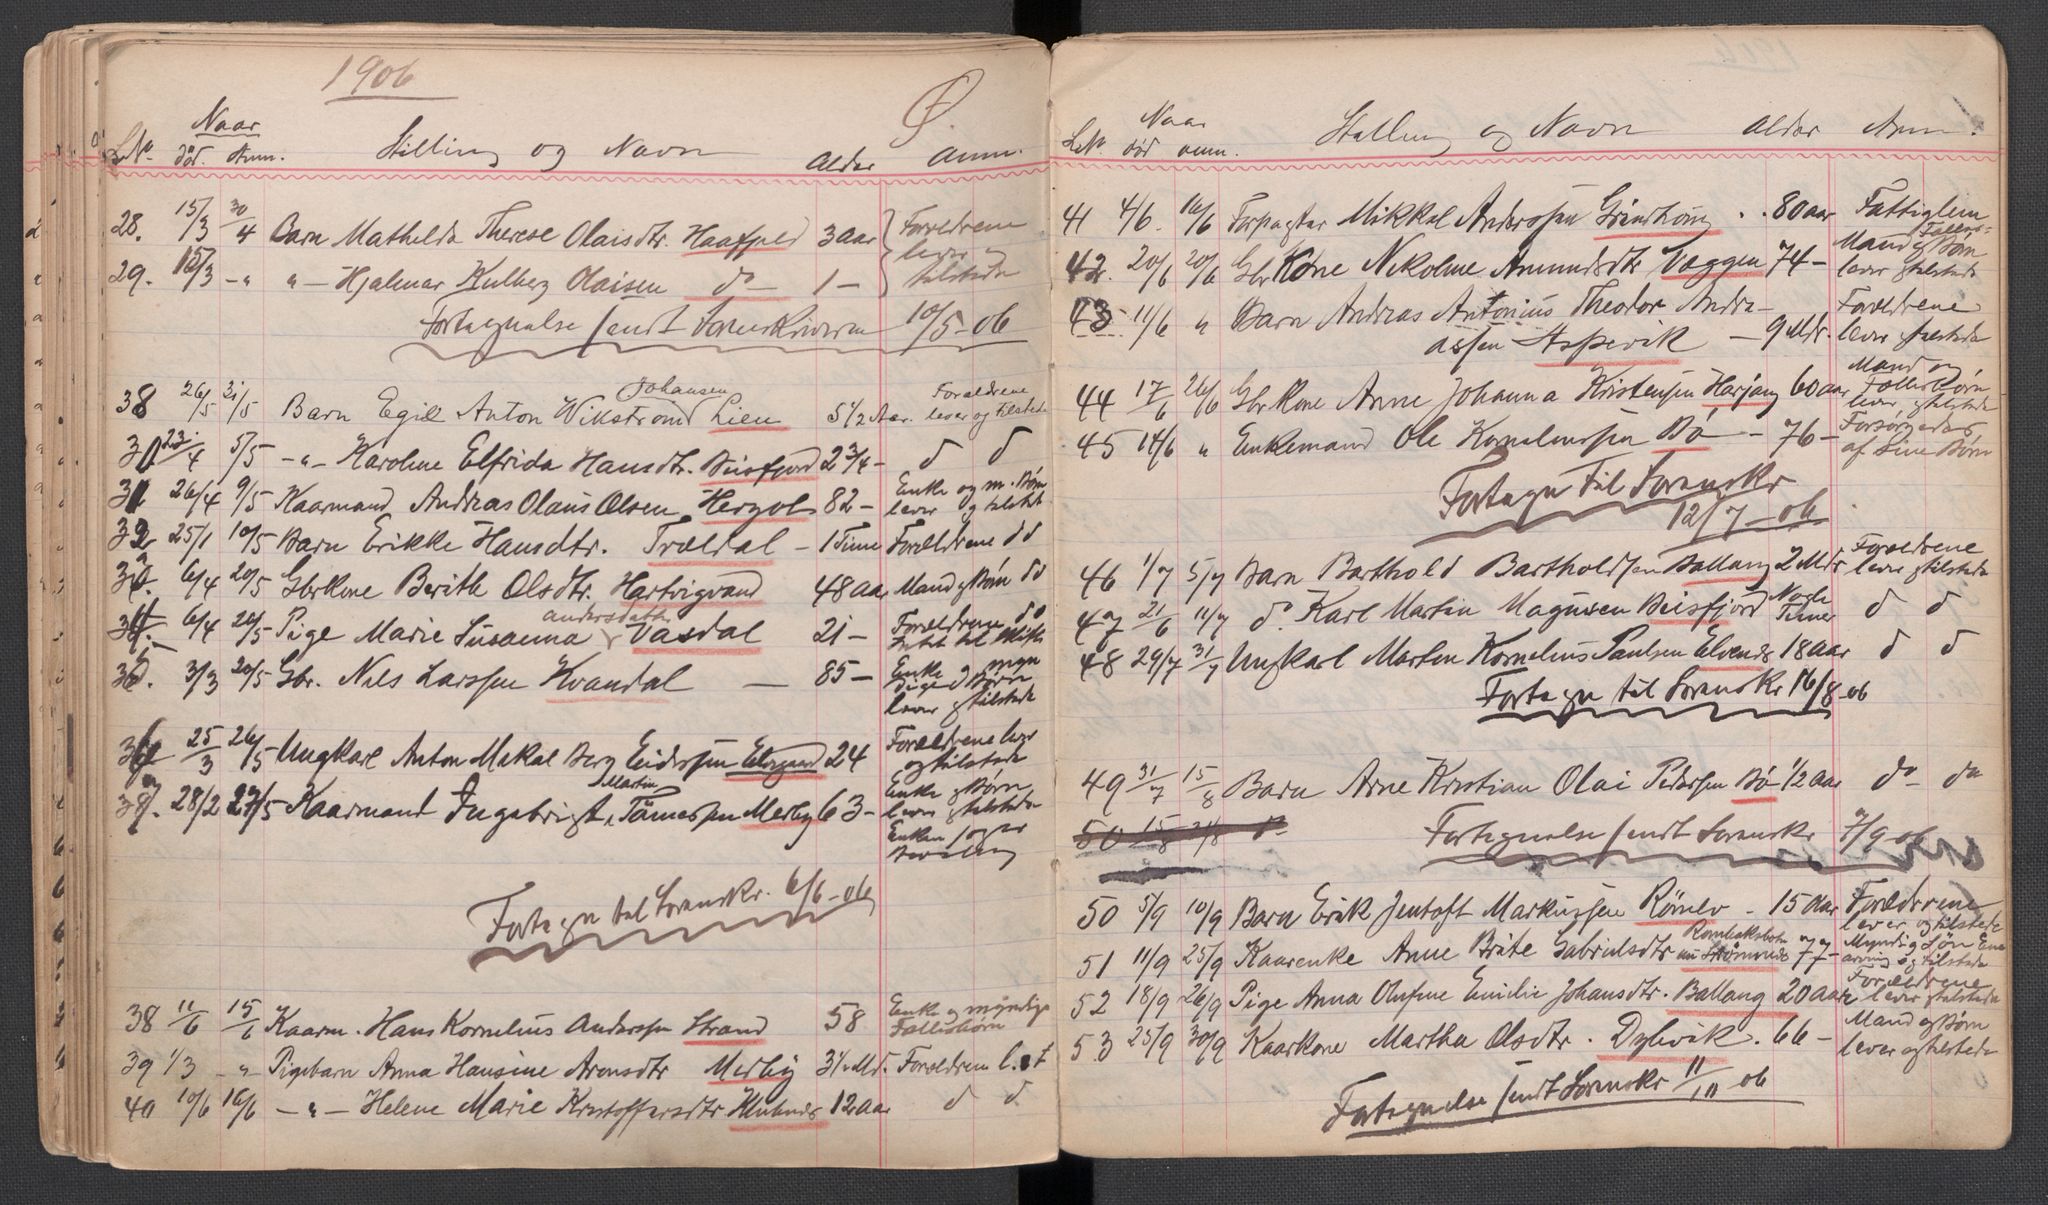 1906
Naar
L.No. död. Anm. Stilling og Navn Alder Anm.
28. 15/3 30/4 Barn Mathilda Therese Olaisdtr. Haafjeld 3 aar Forældrene
lever og
29. 15/3 -"- " - Hjalmar Kulberg Olaisen do 1 - tilstede
Fortegnelse sendt Sorenskriveren 10/5-06
Johansen Forældrene
38 26/5 31/5 Barn Egill Anton Wikstrømd Lien 5 1/2 Aar. lever og tilstede
30 23/4 5/5 -"- Karoline Elfrida Hansdtr. Beisfjord 2 3/4 - d d
31 26/4 9/5 Kaarmand Andreas Olaus Olsen Hergot 82 - Enke og m. Børn
lever og tilstede
32 25/1 10/5 Barn Erikke Hansdtr. Trældal - 1 Time Forældrene d d
33. 6/4 20/5 Gbrkone Berith Olsdtr. Hartvigvand 48 aar Mand og Børn dd
andersdatter
34. 6/4 20/5 Pige Marie Susanna Vasdal 21 - Forældrene do
Intet til Skifte
35. 3/3 20/5 Gbr. Nils Larssen Kvandal - 85 - Enke
lever og tilstede
36 25/3 26/5 Ungkarl Anton Mikal Berg Eidissen Elvegard 24 Forældrene lever
og tilstede
Martin
37. 28/2 27/5 Kaarmand Ingebrigt Tömessen Merby 63 - Enke og Børn
lever tilstede
Enken
Fortegn til Sorenskr. 6/6-06
38 11/6 15/6 Kaarm. Hans Kornelius Anderssen Strand 58 Enke og myndige
Fællesbörn
39 1/3 -" Pigebarn Anna Hansine Aronsdtr Merby 3 1/2 Md. Forældrene l. o t
40 10/6 16/6 -"- Helene Marie Kristoffersdtr Klubnes 12 aar d d
1906
Naar
L.No. död anm. Stilling og Navn Alder Anm.
41 4/6 16/6 Forpagter Mikkel Anderssen Grindhöug . . 80 aar Fattiglem
42 20/6 20/6 Gbrkone Nikoline Amundsdtr Væggen 74 - Mand og Fælles-
Børn
lever og tilstede
43 11/6 " Barn Andreas Antonius Theodor Andre- Forældrene
assen Aspevik - 9 Mdr. lever og tilstede
44 17/6 26/6 Gbrkone Anne Johanna Kristensen Harjang 60 aar Mand og
Fællesbörn
lever og tilstede
45 14/6 " Enkemand Ole Kornelinssen Bö - 76 - Forsörgedes
af sine Börn
Fortegn til Sorenskr
12/7-06
46 1/7 5/7 Barn Barthold Bartholdsen Ballang 2 Mdr Forældrene
lever og tilstede
47 21/6 11/7 d. Karl Martin Magnusen Beisfjord Nogle
Timer d d
48 29/7 31/7 Ungkarl Martin Kornelius Paulsen Elvenes 18 aar d d
Fortegn til Sorenskr 16/8-06
49 31/7 15/8 Barn Arne Kristian Olai Pedersen Bö 1/2 aar do do
50 15/8 21/8 d. Fortegnelse sendt Sorenskr 7/9 06
50 5/9 10/9 Barn Erik Jentoft Markussen Römbo - 15 aar Forældrene
lever og tilstede
Rombaksbotn
51 11/9 25/9 Kaarenke Anne Brite Gabrielsdtr nu Strömsnes 77 - Myndig Sön Ene
arving og tilstede
52 18/9 26/9 Pige Anna Olufine Emilie Johansdtr. Ballang 20 aar Forældrene
lever og tilstede
53 25/9 30/9 Kaarkone Martha Olsdtr. Dybvik. 66 - Mand og Børn
lever og tilstede
Fortegnelse sendt Sorenskr 11/10 06